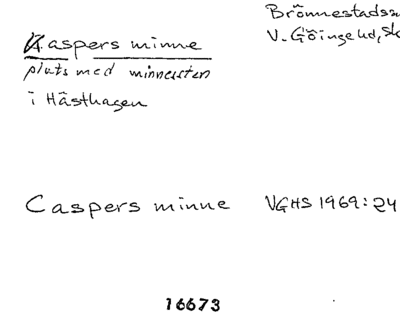 Kaspers minne
plats med minnessten
i Hästhagen
Brönnestads
V. Göinge hd,
Caspers minne VGHS 1969:24
16673